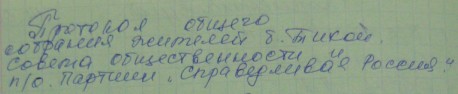 Протокол общего
собрания жителей б. Тихой.
Совета общественности и
п/о. Партии „Справедливая Россия"